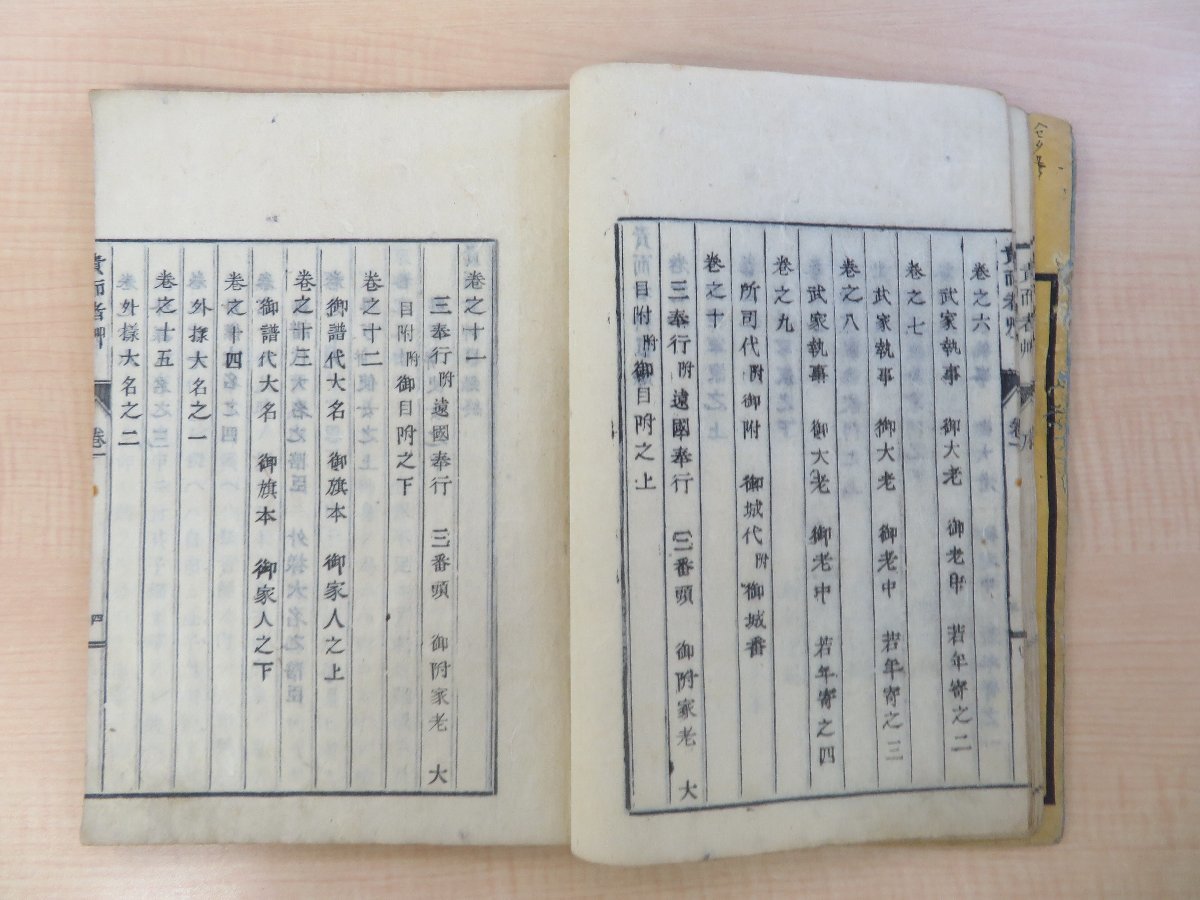 卷之六
武家執事 御大老 御老中 若年寄之二
卷之七
武家執事 御大老 御老中 若年寄之三
卷之八
武家執事 御大老 御老中 若年寄之四
卷之九
所司代附御附 御城代附御城番
卷之十
三奉行附遠國奉行 三番頭 御附家老 大
目附附御目附之上
卷之十一
三奉行附遠國奉行 三番頭 御附家老 大
目附附御目附之下
卷之十二
御譜代大名 御旗本 御家人之上
卷之十三
御譜代大名 御旗本 御家人之下
卷之十四
外樣大名之一
卷之十五
外樣大名之二
卷一
四